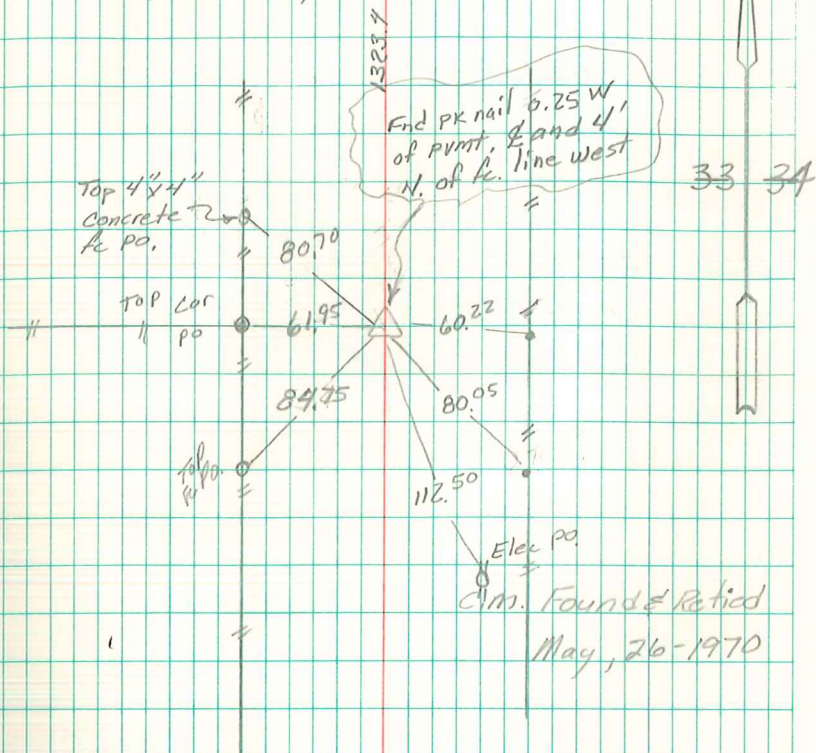 1323.4
Fnd PK nail 0.25 W
of pvmt. ℄ and 4'
N. of fc. line west
33 34
Top 4"x4"
Concrete
fc po.
80.70
Top Cor
po
61.95
60.22
84.75
80.05
Top
fc po.
112.50
Elec po.
C.m. Found & Retied
May, 26-1970